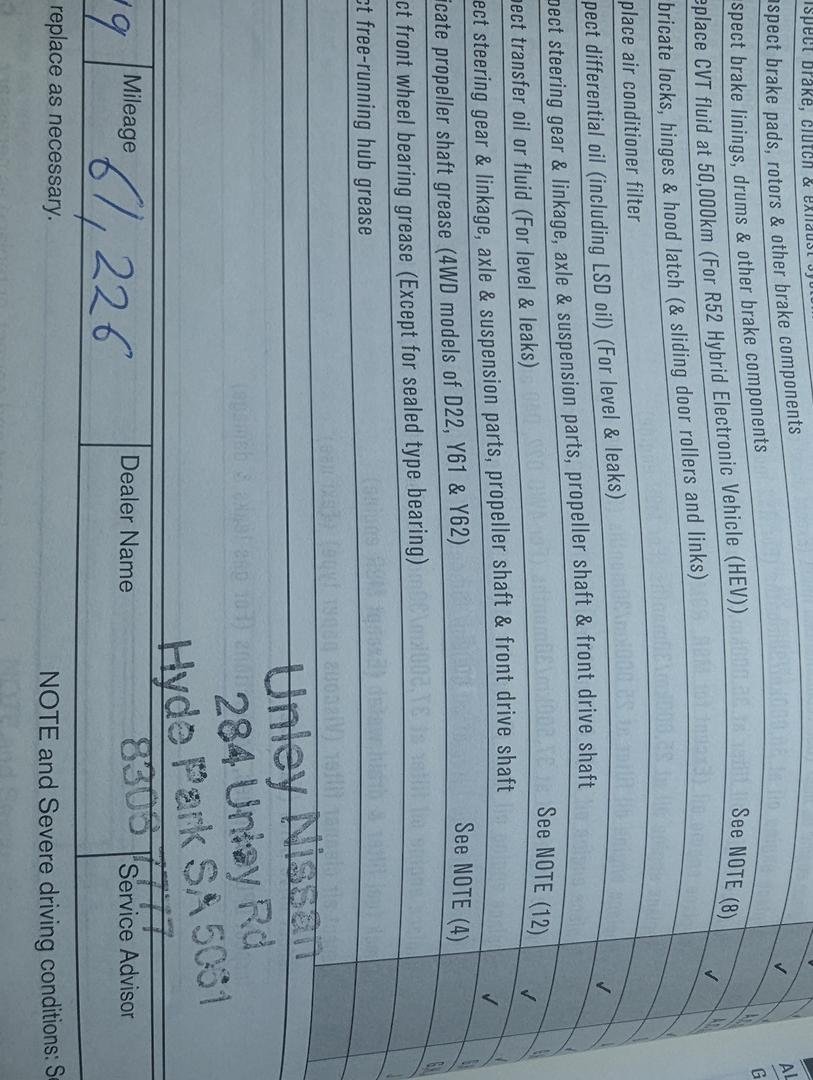 spect brake, clutch & exhaust
spect brake pads, rotors & other brake components
spect brake linings, drums & other brake components
eplace CVT fluid at 50,000km (For R52 Hybrid Electronic Vehicle (HEV)) See NOTE (8)
bricate locks, hinges & hood latch (& sliding door rollers and links)
place air conditioner filter
pect differential oil (including LSD oil) (For level & leaks)
pect steering gear & linkage, axle & suspension parts, propeller shaft & front drive shaft See NOTE (12)
pect transfer oil or fluid (For level & leaks)
ect steering gear & linkage, axle & suspension parts, propeller shaft & front drive shaft
icate propeller shaft grease (4WD models of D22, Y61 & Y62) See NOTE (4)
ct front wheel bearing grease (Except for sealed type bearing)
ct free-running hub grease
Unley Nissan
284 Unley Rd
Hyde Park SA 5061
8308 7777
19 Mileage 61,226 Dealer Name Service Advisor
replace as necessary. NOTE and Severe driving conditions: S